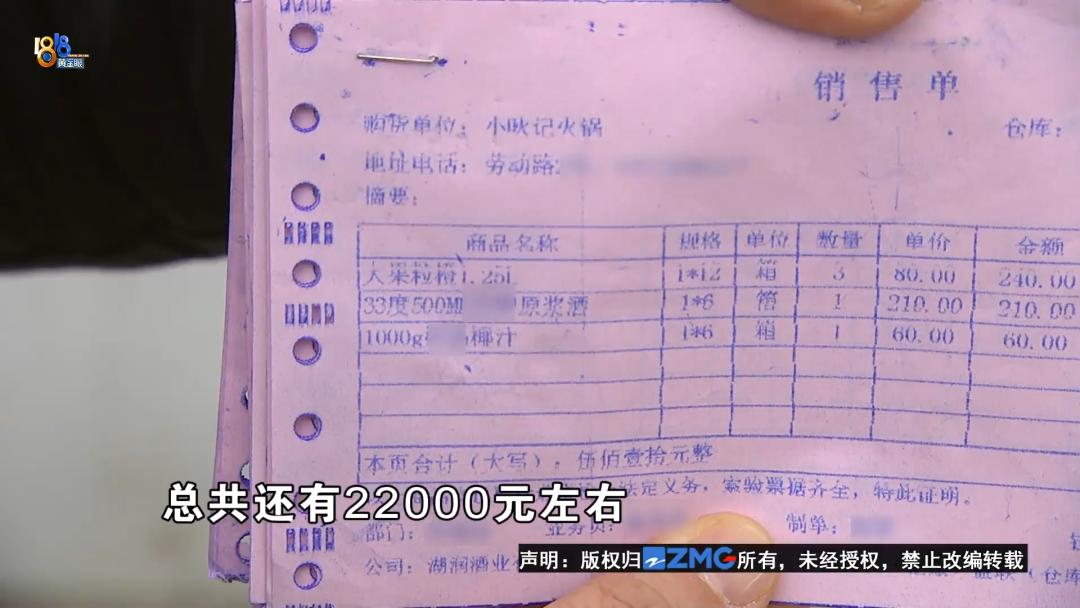 1818
黄金眼
销售单
购货单位：小耿记火锅
仓库：
地址电话：劳动路
摘要：
商品名称 规格 单位 数量 单价 金额
大果粒橙1.25l 1*12 箱 3 80.00 240.00
33度500Ml 原浆酒 1*6 箱 1 210.00 210.00
1000g 椰汁 1*6 箱 1 60.00 60.00
本页合计（大写）：伍佰壹拾元整
法定义务，索验票据齐全，特此证明。
总共还有22000元左右
部门： 业务员： 制单：
公司：湖润酒业
声明：版权归ZMG所有，未经授权，禁止改编转载